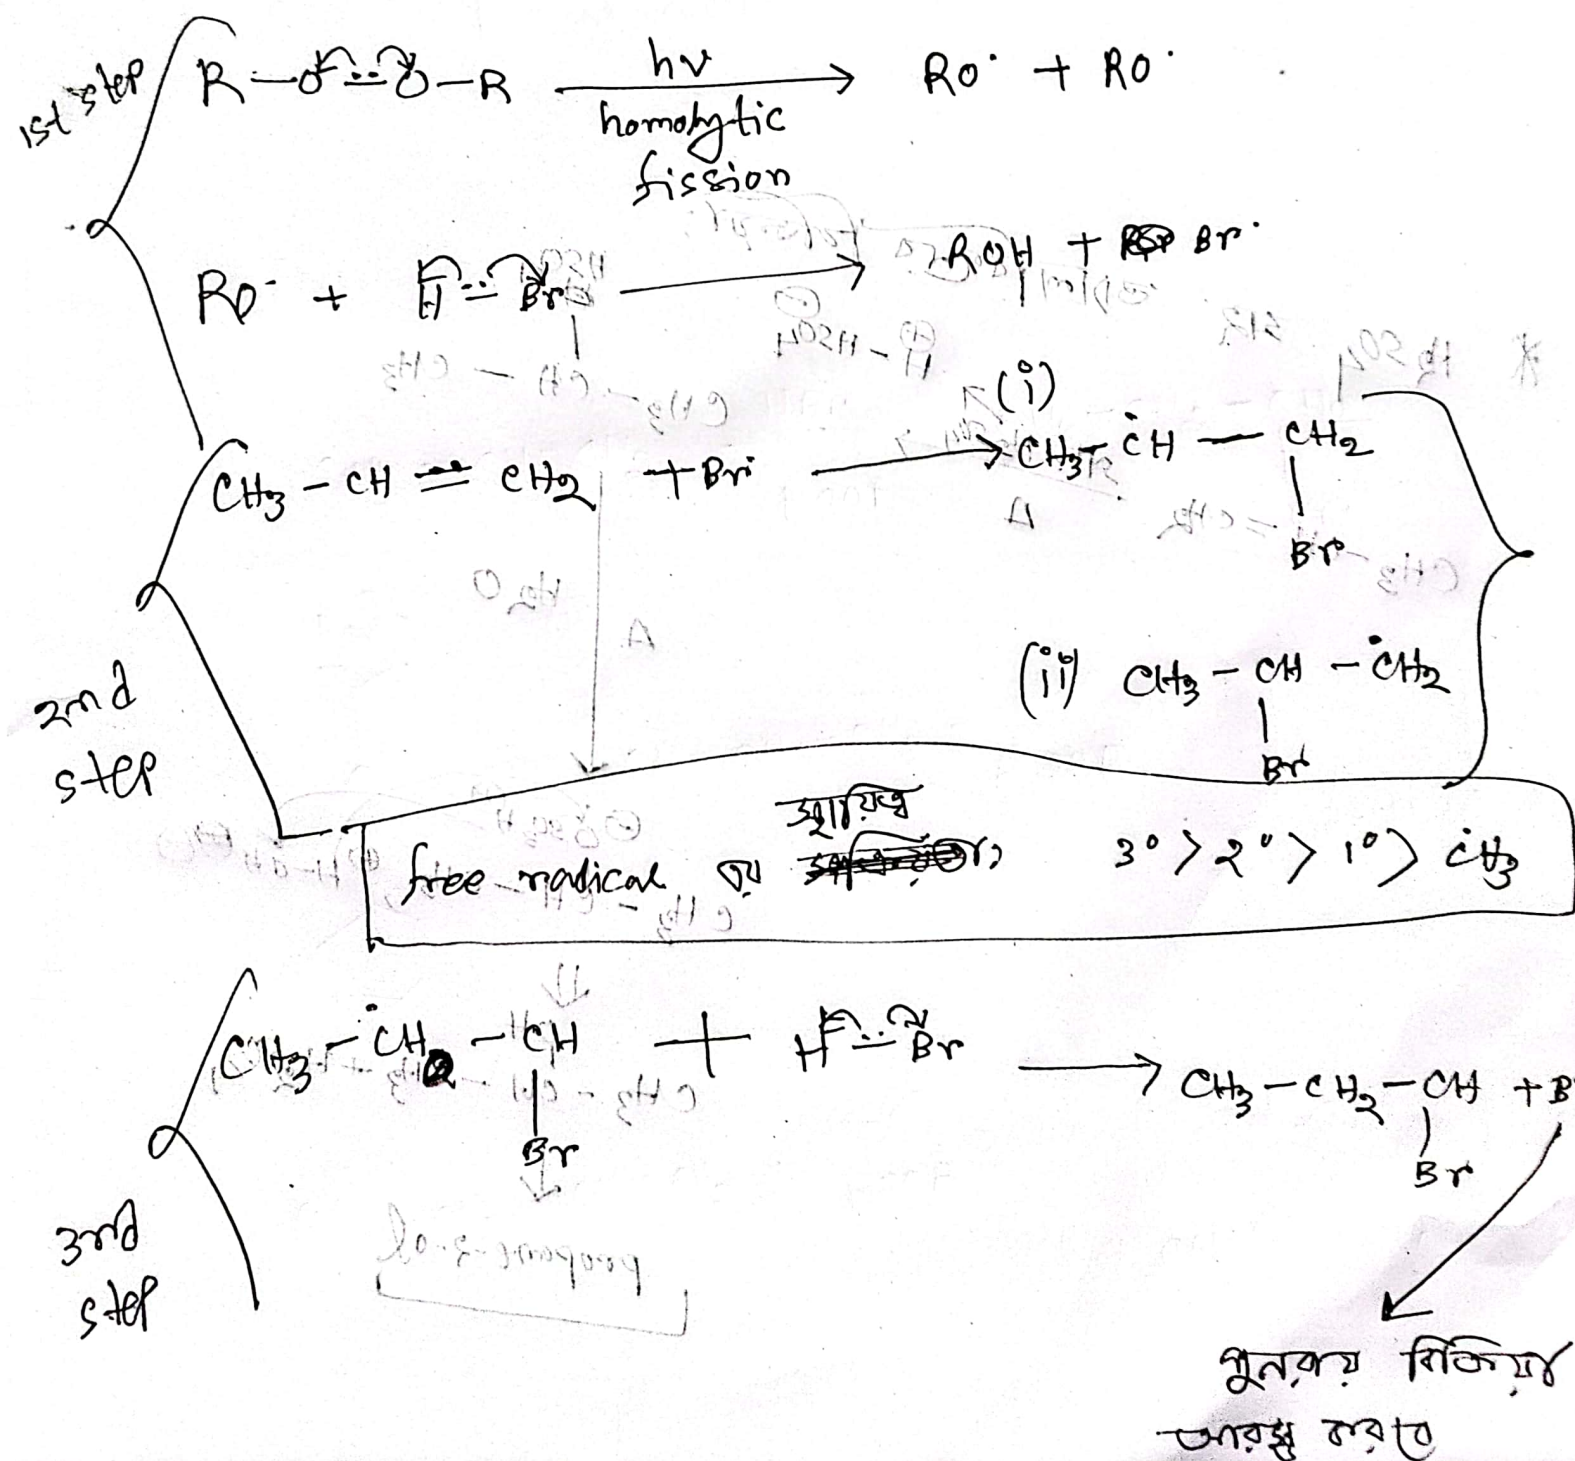 1st step
R-O-̈O-R hν→ RO· + RO·
homolytic
fission
RO· + H-̈Br → ROH + Br·
2nd step
CH₃-CH=CH₂ + Br· → (i) CH₃-ĊH-CH₂
Br
(ii) CH₃-CH-ĊH₂
Br
স্থায়িত্ব
free radical এর 3° > 2° > 1° > ĊH₃
3rd step
CH₃-ĊH-CH + H-̈Br → CH₃-CH₂-CH + B
Br
Br
পুনরায় বিক্রিয়া
আরম্ভ করবে